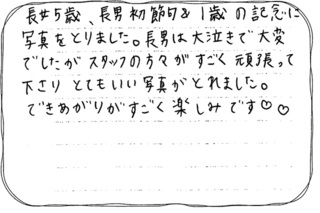 長女5歳、長男初節句&1歳の記念に
写真をとりました。長男は大泣きで大変
でしたがスタッフの方々がすごく頑張って
下さり とてもいい写真がとれました。
できあがりがすごく楽しみです♡♡